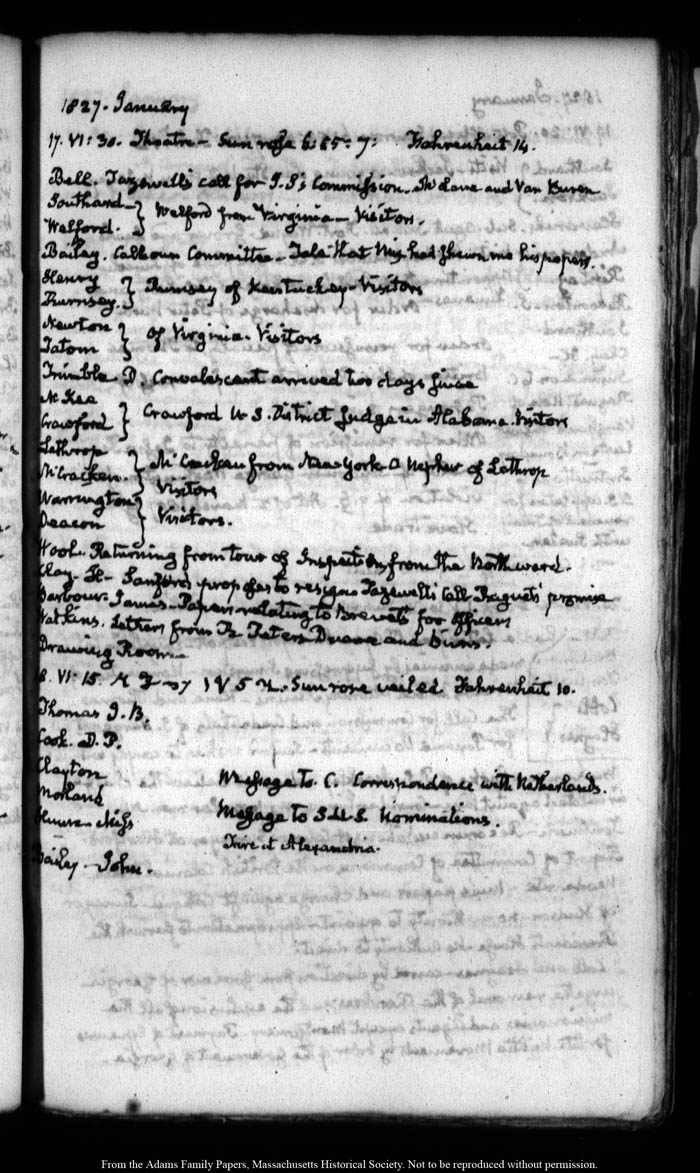 1827. January
17. VI: 30. Theatre - Sun rose 7: Fahrenheit 14.
Bell. Tazewell's call for Commission. McLane and Van Buren
Southard }
Welford. } Welford from Virginia - Visitors.
Bailey. Calhoun Committee - Tale that Mix had shewn me his papers.
Henry }
Rumsey. } Rumsey of Kentuckey - Visitors
Newton }
Tatom } of Virginia. Visitors
Trimble. D. Convalescent arrived two days since
McKee }
Crawford } Crawford U.S. District Judge in Alabama. Visitors
Lathrop }
McCracken. } McCracken from New-York a Nephew of Lothrop
Visitors
Warrington }
Deacon } Visitors.
Wool. Returning from tour of Inspection from the Northward.
Clay. H - Sanford's proposes to resign Tazewell's call promise
Barbour. James - Papers relating to Brevets for Officers
Watkins. Letters from Peters Duane and Burns.
Drawing Room
VI: 15. Sun rose veiled Fahrenheit 10.
Thomas J. B.
Cook. D. P.
Clayton
Message to C. Correspondence with Netherlands.
Message to S.U.S. Nominations.
Fire at Alexandria.
Bailey - John.
From the Adams Family Papers, Massachusetts Historical Society. Not to be reproduced without permission.